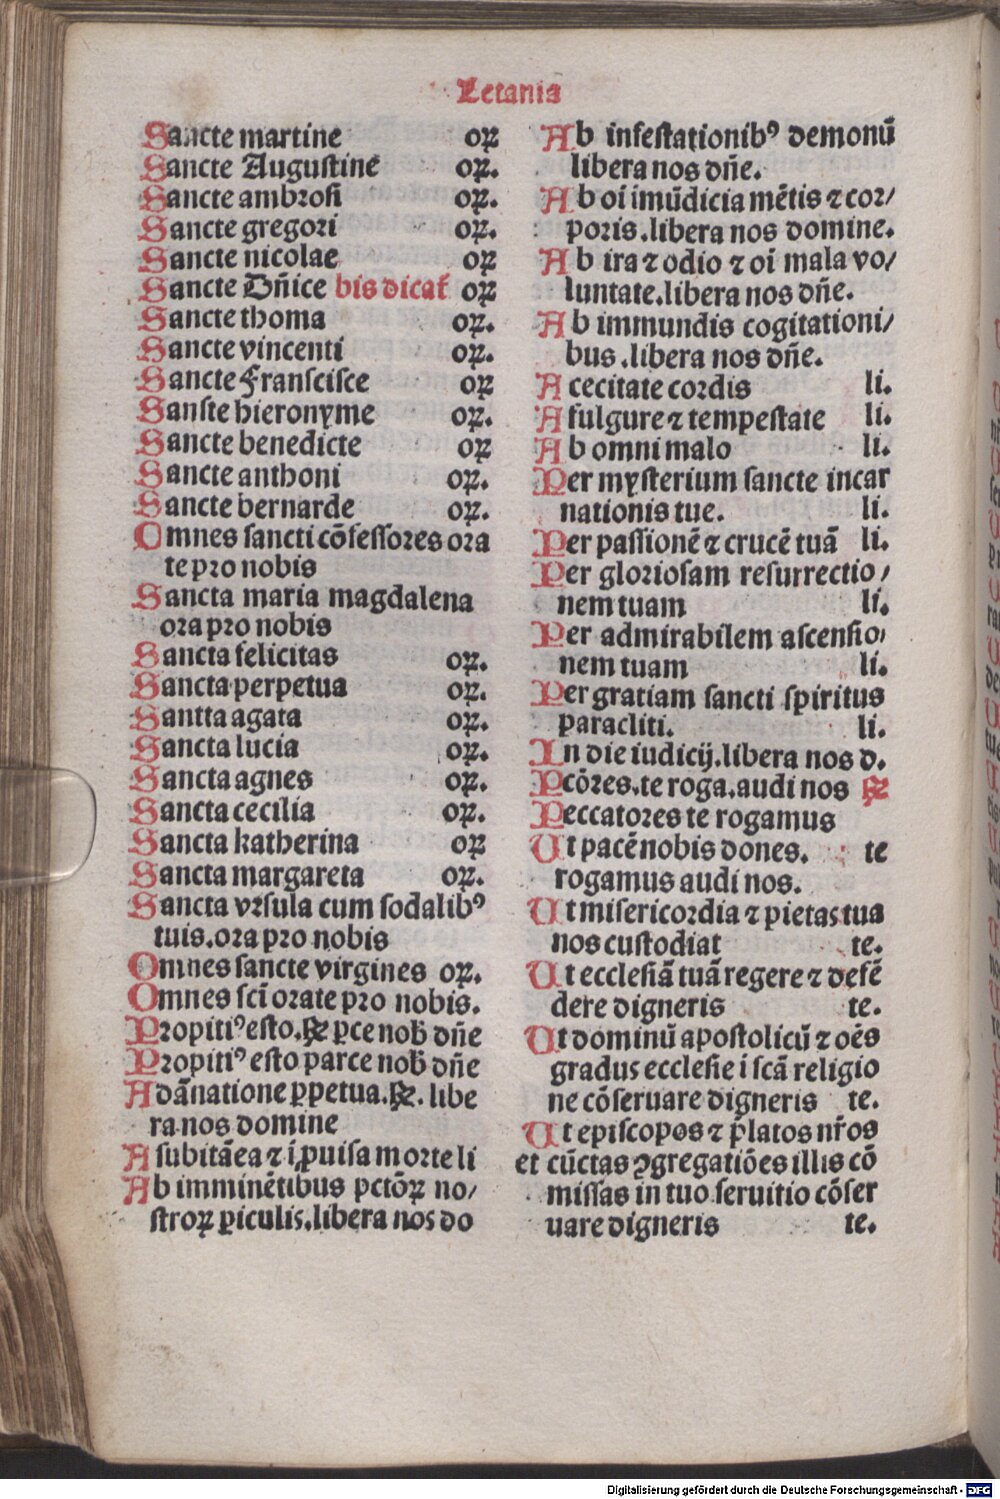 Letania
Sancte martine oꝝ
Sancte Augustine oꝝ.
Sancte ambrosi oꝝ.
Sancte gregori oꝝ.
Sancte nicolae oꝝ
Sancte Dn̄ice bis dicat̄ oꝝ
Sancte thoma oꝝ.
Sancte vincenti oꝝ.
Sancte Franscisce oꝝ
Sanste hieronyme oꝝ.
Sancte benedicte oꝝ
Sancte anthoni oꝝ.
Sancte bernarde oꝝ.
Omnes sancti cōfessores ora
te pro nobis
Sancta maria magdalena
ora pro nobis
Sancta felicitas oꝝ.
Sancta perpetua oꝝ.
Santta agata oꝝ.
Sancta lucia oꝝ.
Sancta agnes oꝝ.
Sancta cecilia oꝝ.
Sancta katherina oꝝ
Sancta margareta oꝝ.
Sancta vrsula cum sodalibꝰ
tuis.ora pro nobis
Omnes sancte virgines oꝝ.
Omnes sci̅ orate pro nobis.
Propitiꝰ esto.℟ ꝑce nob̄ dn̄e
Propitiꝰ esto parce nob̄ dn̄e
A dānatione ꝑpetua.℟. libe
ra nos domine
A subitāea ⁊ i̅ꝓuisa morte li
Ab imminētibus pctōꝝ no/
stroꝝ ꝑiculis.libera nos do
Ab infestationibꝰ demonū
libera nos dn̄e.
Ab oi̅ imūdicia mētis ⁊ cor/
poris.libera nos domine.
Ab ira ⁊ odio ⁊ oi̅ mala vo/
luntate.libera nos dn̄e.
Ab immundis cogitationi/
bus.libera nos dn̄e.
A cecitate cordis li.
A fulgure ⁊ tempestate li.
Ab omni malo li.
Per mysterium sancte incar
nationis tue. li.
Per passionē ⁊ crucē tuā li.
Per gloriosam resurrectio/
nem tuam li.
Per admirabilem ascensio/
nem tuam li.
Per gratiam sancti spiritus
paracliti. li.
In die iudicij.libera nos d.
Pcōres.te roga.audi nos ℟
Peccatores te rogamus
Ut pacē nobis dones. te
rogamus audi nos.
Ut misericordia ⁊ pietas tua
nos custodiat te.
Ut ecclesiā tuā regere ⁊ defē
dere digneris te.
Ut dominū apostolicū ⁊ oēs
gradus ecclesie i scā religio
ne cōseruare digneris te.
Ut episcopos ⁊ p̄latos nr̄os
et cūctas ꝯgregatiōes illis cō
missas in tuo seruitio cōser
uare digneris te.
Digitalisierung gefördert durch die Deutsche Forschungsgemeinschaft - DFG